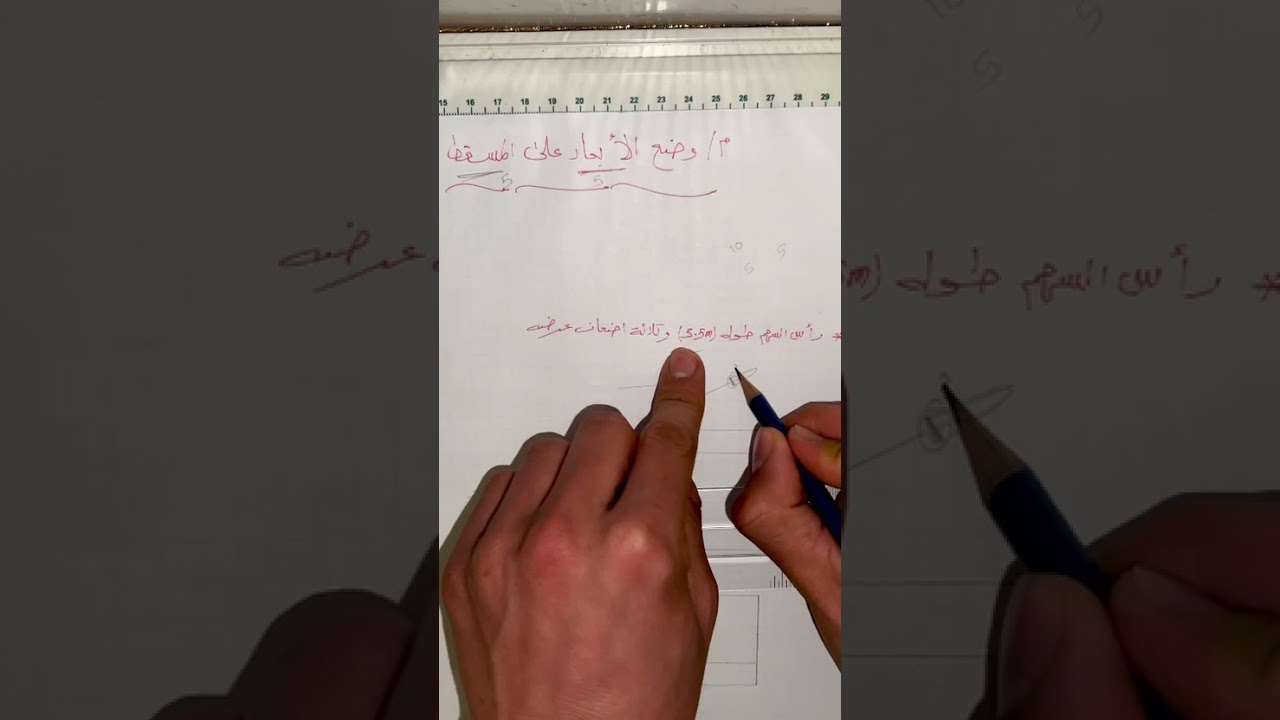 15 16 17 18 19 20 21 22 23 24 25 26 27 28 29
م/ وضع الأبعاد على المسقط
5 5
10 5
5
* رأس السهم طوله (3.5m) وثلاثة اضعاف عرضه